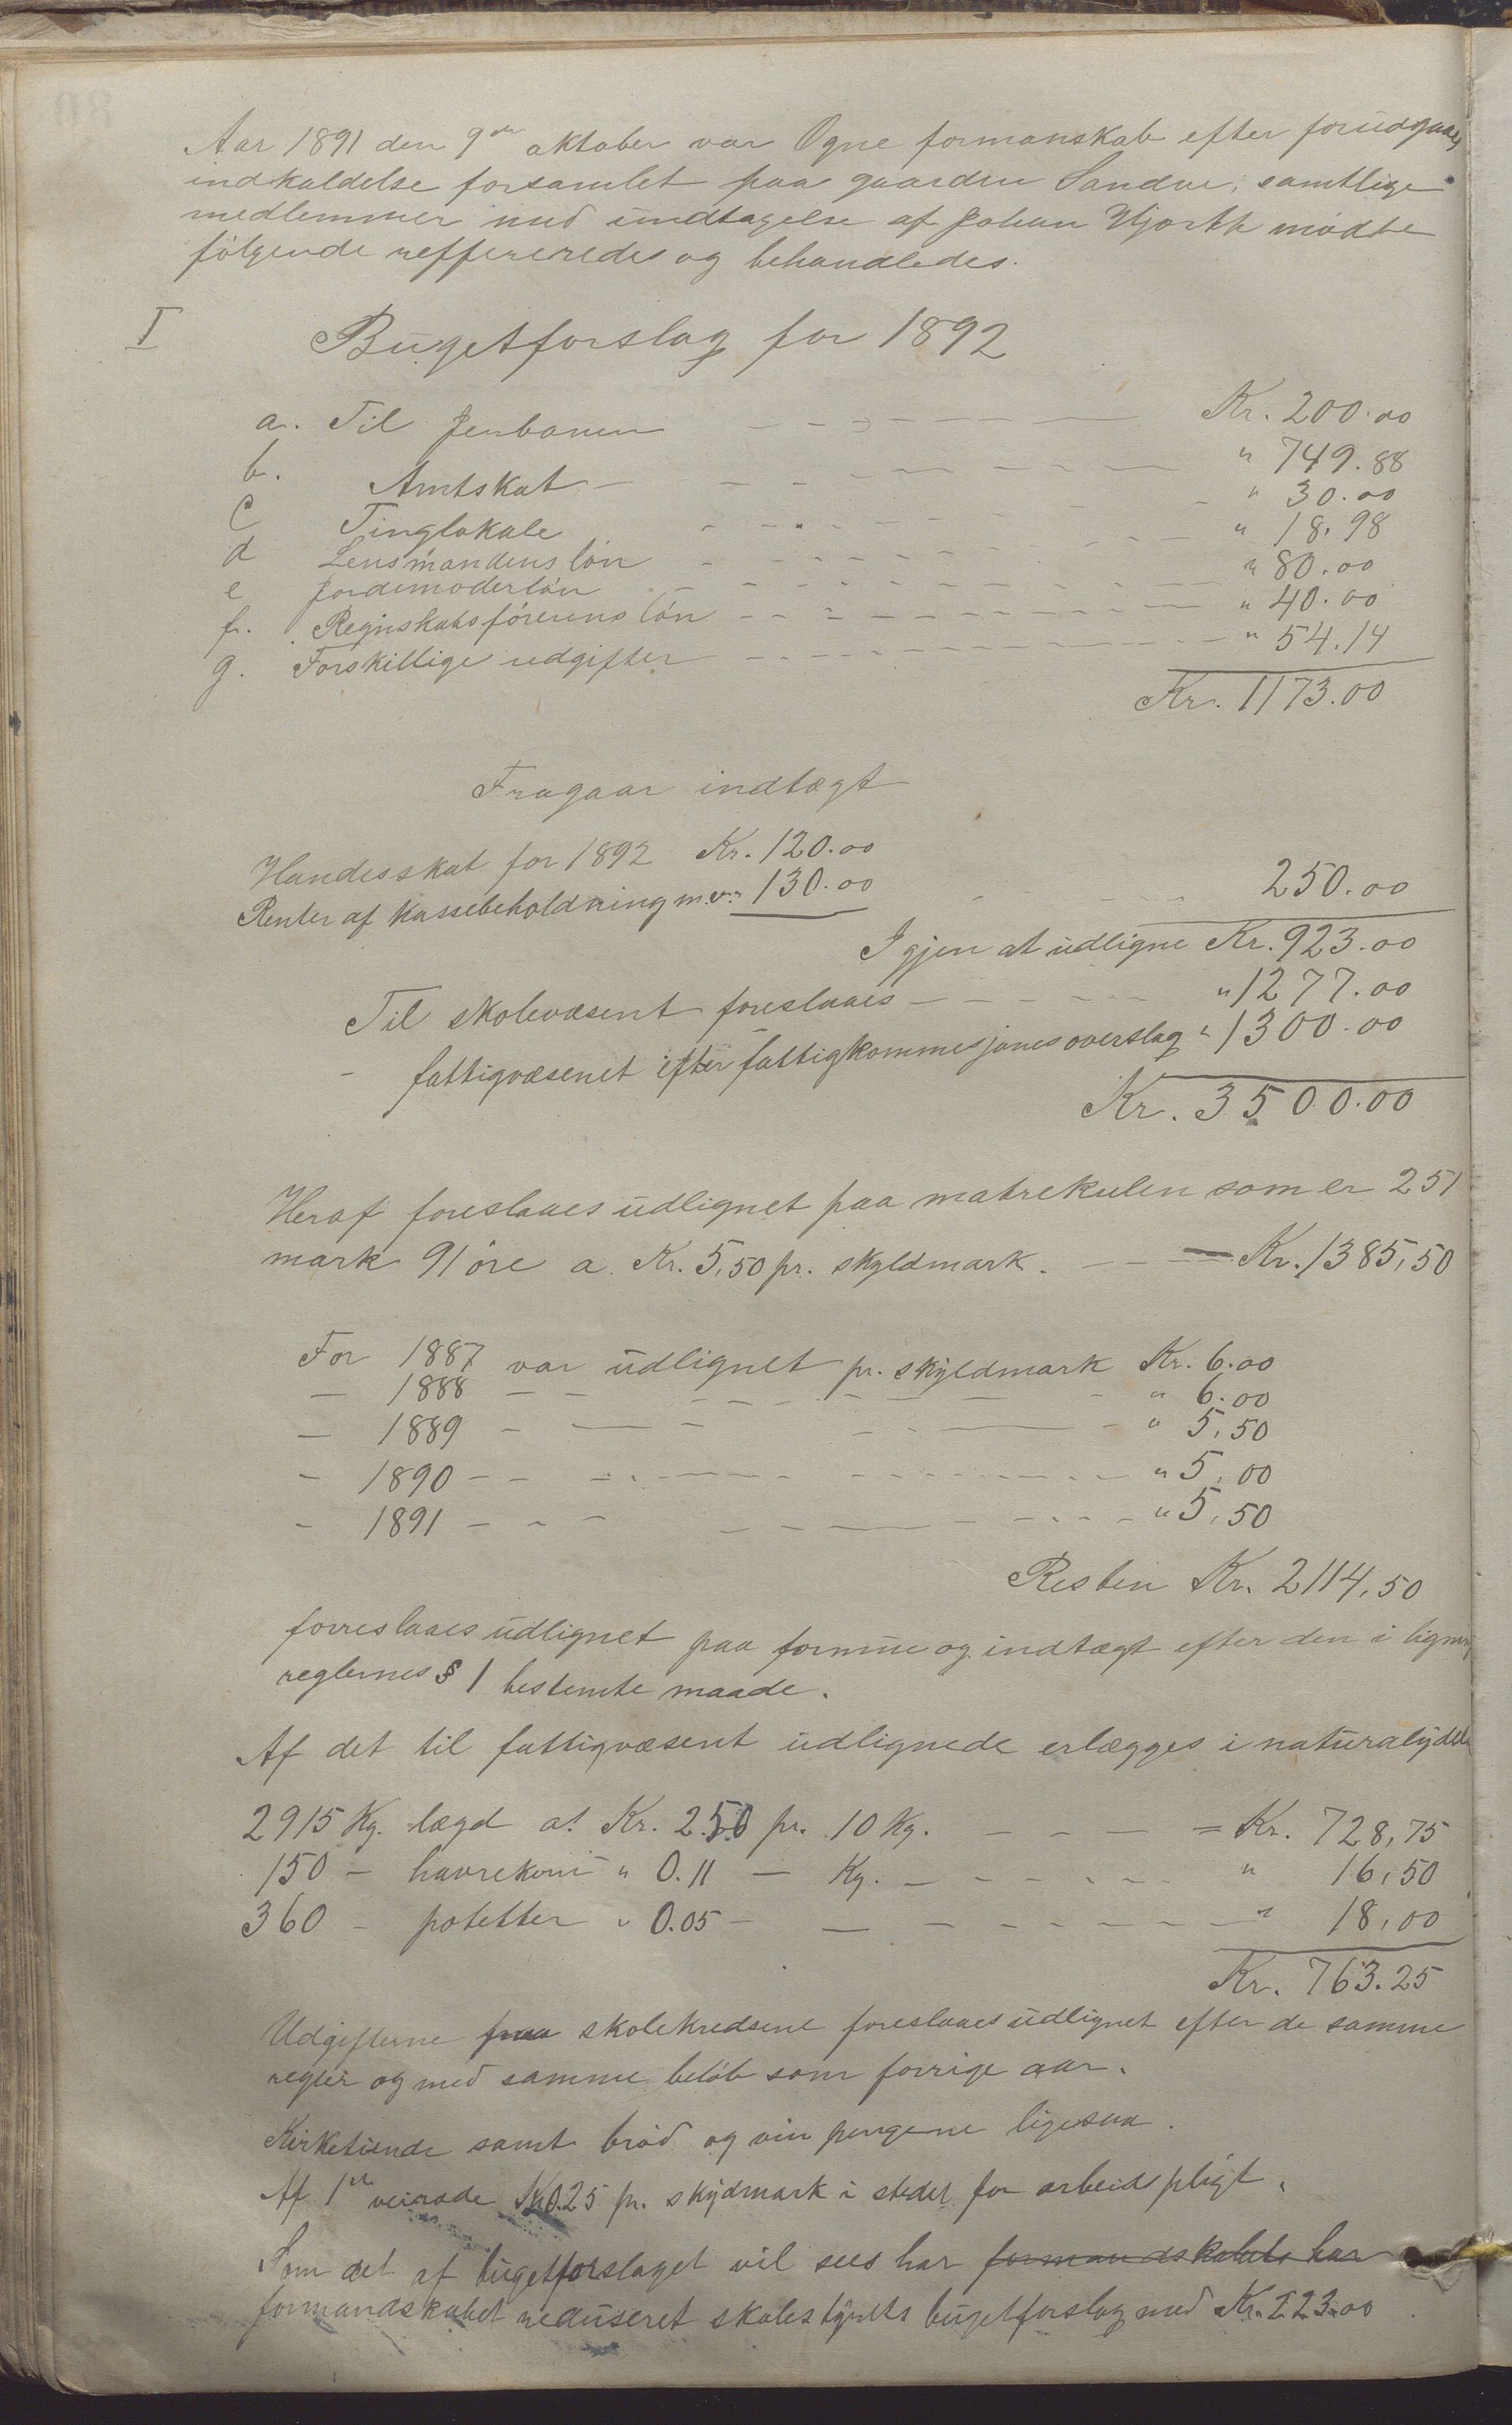 Aar 1891 den 9de oktober var Ogne formanskab efter forudgaaen
indkaldelse forsamlet paa gaarden Sandve, samtlige
medlemmer med undtagelse af Johan Hjorth mødte
følgende reffereredes og behandledes.
I Bugetforslag for 1892
a. Til Jenbanen - - - Kr. 200.00
b. Amtskat - - - - " 749.88
c Tinglokale - - - - " 30.00
d Lensmandens løn - - - " 18.98
e Jordemoderløn - - - " 80.00
f. Regnskabsførerens løn - - - " 40.00
g. Forskillige udgifter - - - " 54.14
Kr. 1173.00
Fragaar indtægt
Handesskat for 1892 Kr. 120.00
Renter af Kassebeholdning m.v. " 130.00 - - - 250.00
Igjen at udligne Kr. 923.00
Til skolevæsent foreslaaes - - - " 1277.00
- fattigvæsenet efter fattigkommesjones overslag " 1300.00
Kr. 3500.00
Heraf foreslaaes udlignet paa matrekulen som er 251
mark 91 øre a. Kr. 5,50 pr. skyldmark. - - - Kr. 1385,50
For 1887 var udlignet pr. skyldmark Kr. 6.00
- 1888 - - - - - " 6.00
- 1889 - - - - - " 5,50
- 1890 - - - - - " 5,00
- 1891 - - - - - " 5,50
Resten Kr. 2114,50
forreslaaes udlignet paa formue og indtægt efter den i lignin
reglernes § 1 bestemte maade.
Af det til fattigvæsent udlignede erlægges i naturalydel
2915 Kg. lægd at Kr. 2.50 pr. 10 Kg. - - - = Kr. 728,75
150 - havrekorn " 0.11 - Kg. - - - " 16,50
360 - potetter " 0.05 - - - - " 18,00
Kr. 763.25
Udgifterne paa skolekredsene foreslaaes udlignet efter de samme
regler og med samme beløb som forrige aar.
Kirketiende samt brød og vin pengene ligesaa.
Af 1ste veirode Kr 0.25 pr. skydmark i stedet for arbeidspligt.
Som det af bugetforslaget vil sees har formandskabets har
formandskabet reduseret skolestyrets bugetforslag med Kr. 223.00.